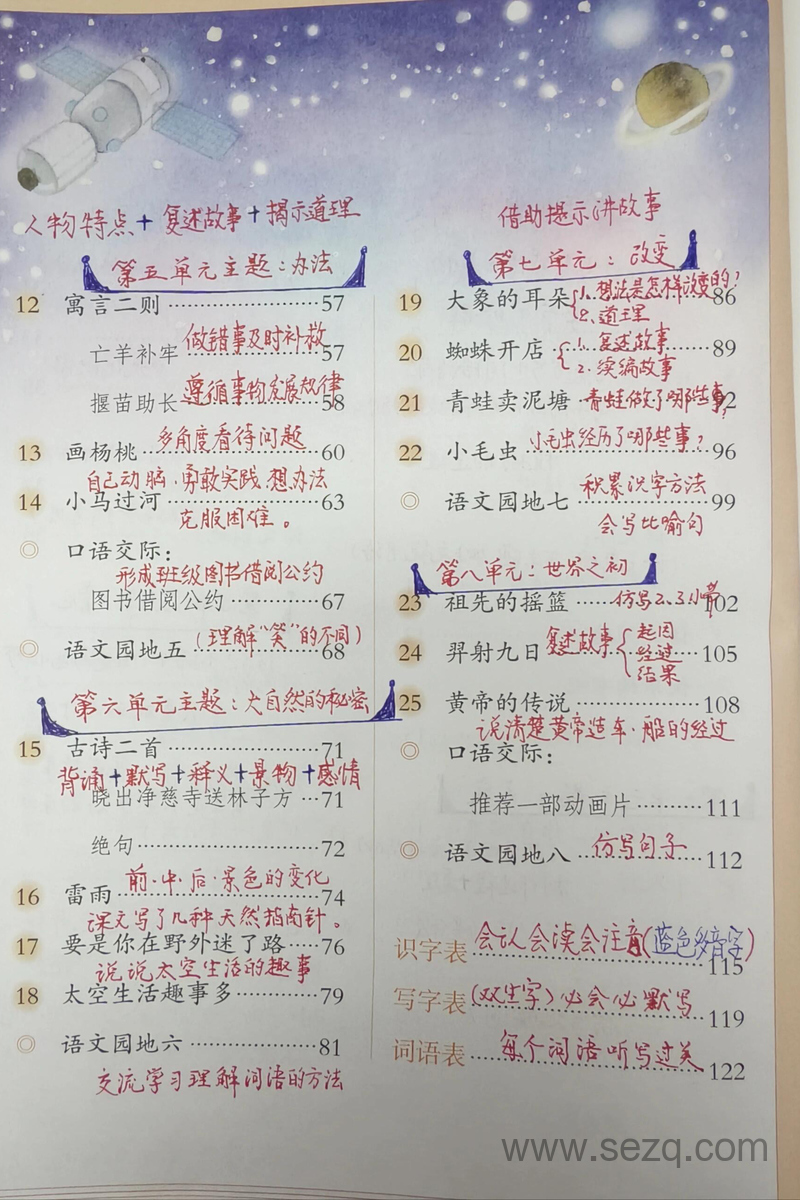 人物特点+复述故事+揭示道理
第五单元主题：办法
12 寓言二则……………………57
做错事及时补救
亡羊补牢……………………57
遵循事物发展规律
揠苗助长……………………58
多角度看待问题
13 画杨桃……………………60
自己动脑·勇敢实践·想办法
14 小马过河……………………63
克服困难。
◎ 口语交际：
形成班级图书借阅公约
图书借阅公约……………67
◎ 语文园地五（理解“笑”的不同）68
第六单元主题：大自然的秘密
15 古诗二首……………………71
背诵+默写+释义+景物+感情
晓出净慈寺送林子方…71
绝句……………………72
前·中·后·景色的变化
16 雷雨……………………74
课文写了几种天然指南针。
17 要是你在野外迷了路……76
说说太空生活的趣事
18 太空生活趣事多…………79
◎ 语文园地六………………81
交流学习理解词语的方法
借助提示讲故事
第七单元：改变
19 大象的耳朵{1.想法是怎样改变的？86
2.道理
20 蜘蛛开店…{1.复述故事……89
2.续编故事
21 青蛙卖泥塘·青蛙做了哪些事？92
22 小毛虫 小毛虫经历了哪些事？96
◎ 语文园地七 积累识字方法 99
会写比喻句
第八单元：世界之初
23 祖先的摇篮……仿写2、3小节102
24 羿射九日 复述故事{起因 经过 结果 105
25 黄帝的传说………………108
说清楚黄帝造车·船的经过
◎ 口语交际：
推荐一部动画片…………111
◎ 语文园地八 仿写句子 112
识字表 会认会读会注音(蓝色多音字) 115
写字表(双生字)必会必默写 119
词语表……每个词语听写过关 122
www.sezq.com